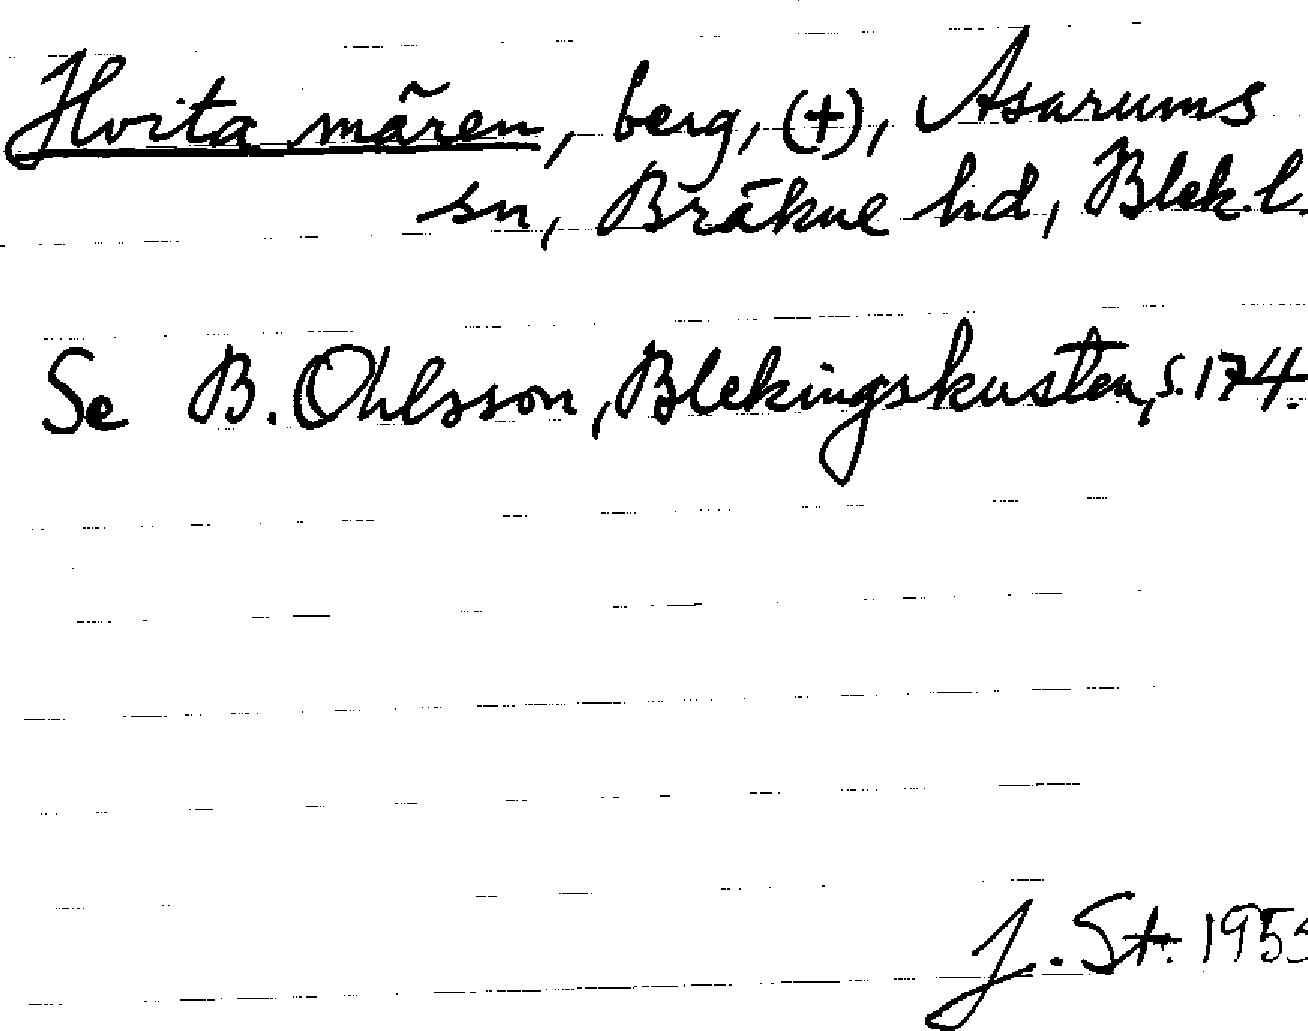 Hvita mären, berg, (+), Asarums
sn, Bräkne hd, Blek. l.
Se B. Ohlsson, Blekingskusten, s. 174.
J. St. 195